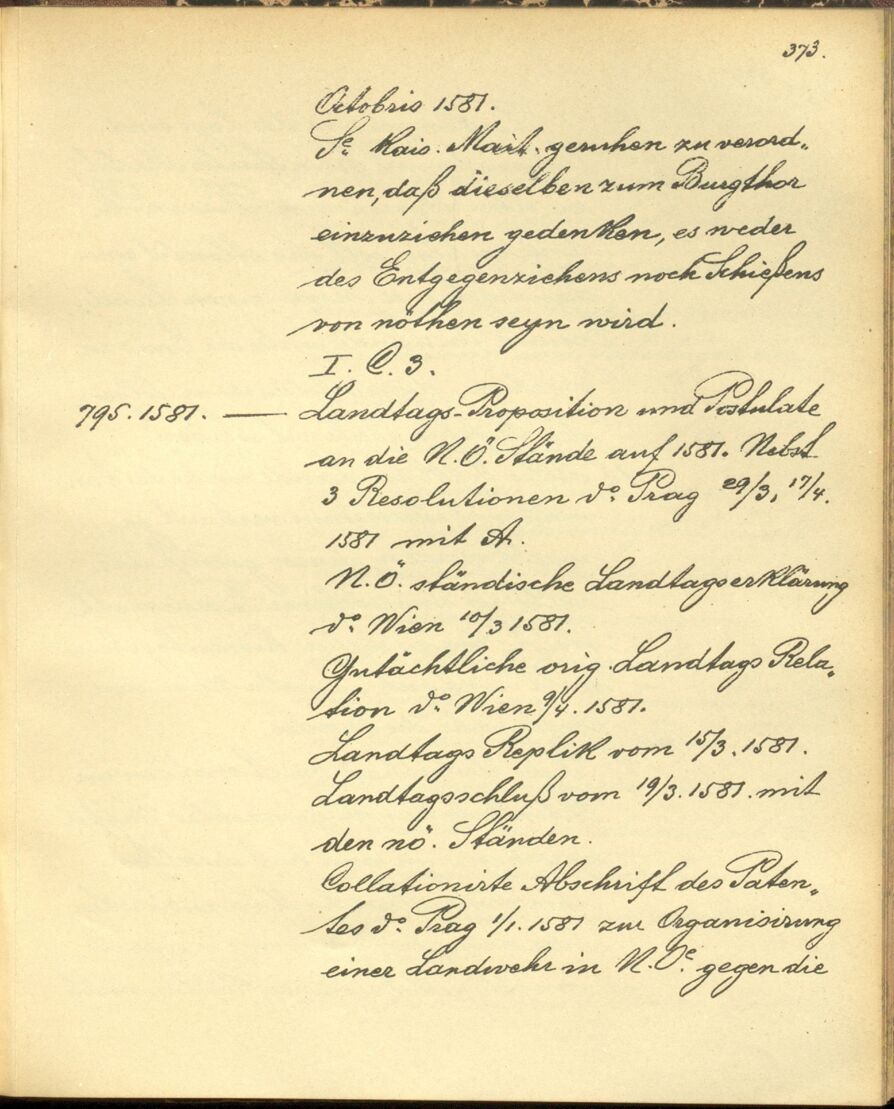 373.
Octobris 1581.
Se. Kais. Mait. geruhen zu verord„
nen, daß dieselben zum Burgthor
einzuziehen gedenken, es weder
des Entgegenziehens noch Schießens
von nöthen seyn wird.
I. C. 3.
795. 1581. — Landtags-Proposition und Postulate
an die N.Ö. Stände auf 1581. Nebst
3 Resolutionen do. Prag 29/3, 17/4.
1581 mit A.
N.Ö. ständische Landtagserklärung
do. Wien 10/3 1581.
Gutächtliche orig. Landtags Rela„
tion do. Wien 9/4. 1581.
Landtags Replik vom 15/3. 1581.
Landtagsschluß vom 19/3. 1581. mit
den nö. Ständen.
Collationirte Abschrift des Paten„
tes do. Prag 1/1. 1581 zur Organisirung
einer Landwehr in N.Oe. gegen die